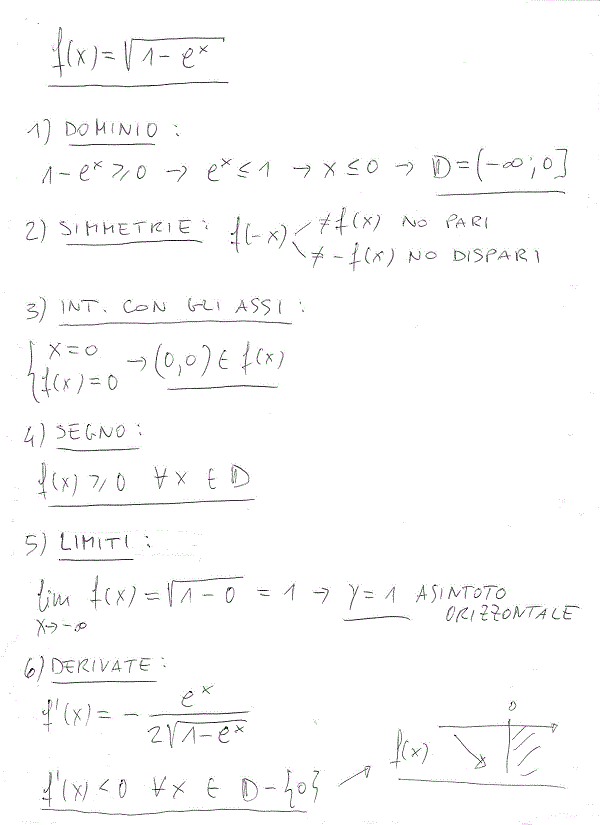 f(x) = √(1 - e^x)
1) DOMINIO :
1 - e^x ⩾ 0 → e^x ≤ 1 → x ≤ 0 → D = (-∞; 0]
2) SIMMETRIE : f(-x) ≠ f(x) NO PARI
≠ - f(x) NO DISPARI
3) INT. CON GLI ASSI :
{ x = 0
f(x) = 0 → (0,0) ∈ f(x)
4) SEGNO :
f(x) ⩾ 0 ∀ x ∈ D
5) LIMITI :
lim x→-∞ f(x) = √(1 - 0) = 1 → y = 1 ASINTOTO
ORIZZONTALE
6) DERIVATE :
f'(x) = - e^x / (2√(1 - e^x))
0
f(x) ↘
f'(x) < 0 ∀ x ∈ D - {0} ↗